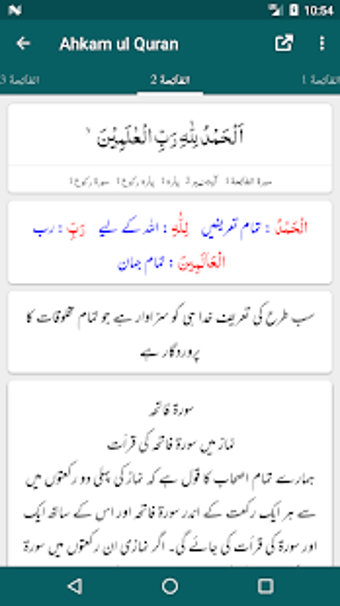 10:54
Ahkam ul Quran
الفاتحة 1
الفاتحة 2
الفاتحة 3
اَلْحَمْدُ لِلّٰهِ رَبِّ الْعٰلَمِيْنَ ۙ
سورۃ الفاتحة 1 آیت نمبر 2 پارہ 1 پارہ رکوع 1 سورۃ رکوع 1
الْحَمْدُ : تمام تعریفیں لِلّٰہِ : اللہ کے لیے رَبِّ : رب
الْعَالَمِينَ : تمام جہان
سب طرح کی تعریف خدا ہی کو سزاوار ہے جو تمام مخلوقات کا
پروردگار ہے
سورۃ فاتحہ
نماز میں سورۃ فاتحہ کی قرأت
ہمارے تمام اصحاب کا قول ہے کہ نماز کی پہلی دو رکعتوں میں
سے ہر ایک رکعت کے اندر سورۃ فاتحہ اور اس کے ساتھ ایک
اور سورۃ کی قرأت کی جائے گی۔ اگر نمازی ان رکعتوں میں سورۃ